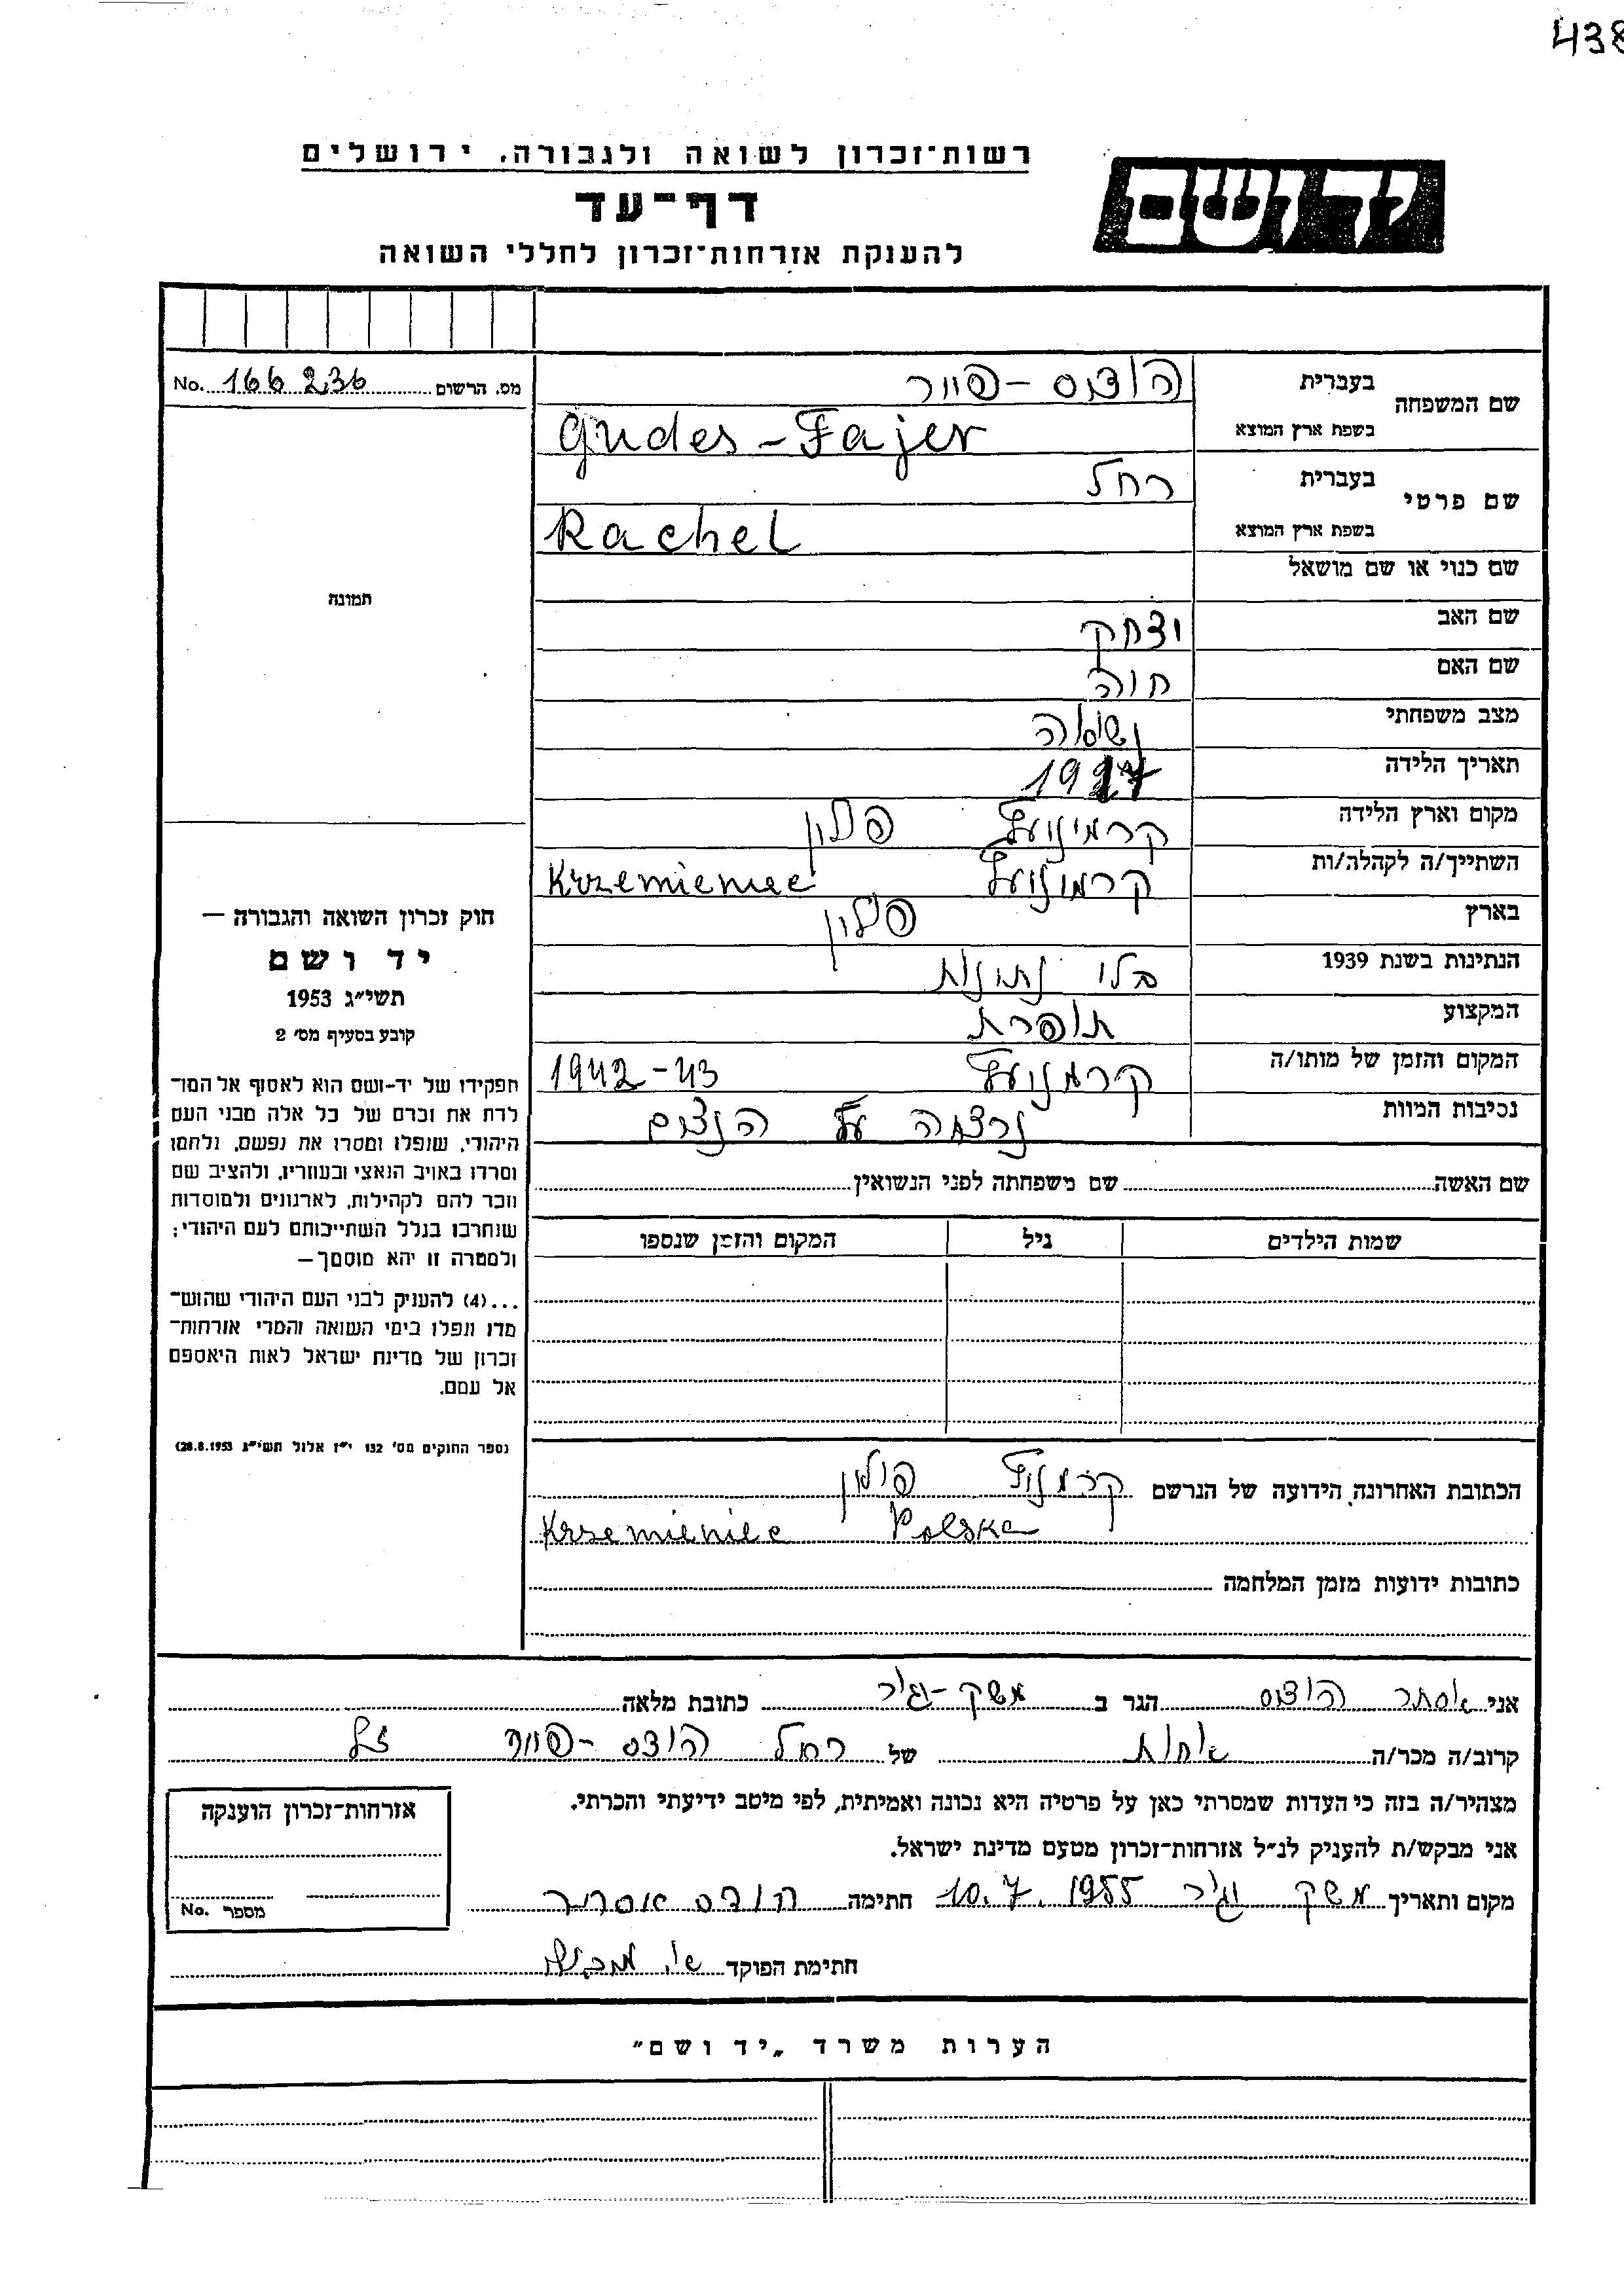 438
רשות־זכרון לשואה ולגבורה, ירושלים
יד ושם
דף־עד
להענקת אזרחות־זכרון לחללי השואה
מס. הרשום No. 166236
שם המשפחה
בעברית הודס-פייר
בשפת ארץ המוצא Gudes-Fajer
שם פרטי
בעברית רחל
בשפת ארץ המוצא Rachel
שם כנוי או שם מושאל
שם האב יצחק
שם האם חוה
מצב משפחתי נשואה
תאריך הלידה
מקום וארץ הלידה קרמיניעץ פולין
השתייך/ה לקהלה/ות קרמיניעץ Krzemieniec
בארץ פולין
הנתינות בשנת 1939 בלי נתינות
המקצוע תופרת
המקום והזמן של מותו/ה קרמניעץ 1942-43
נסיבות המוות נרצחה על הנצים
שם האשה שם משפחתה לפני הנשואין
שמות הילדים גיל המקום והזמן שנספו
תמונה
חוק זכרון השואה והגבורה —
יד ושם
תשי״ג 1953
קובע בסעיף מס׳ 2
תפקידו של יד-ושם הוא לאסוף אל המו־
לדת את זכרם של כל אלה מבני העם
היהודי, שנפלו ומסרו את נפשם, נלחמו
ומרדו באויב הנאצי ובעוזריו, ולהציב שם
וזכר להם לקהילות, לארגונים ולמוסדות
שנחרבו בגלל השתייכותם לעם היהודי;
ולמטרה זו יהא מוסמך—
...(4) להעניק לבני העם היהודי שהוש־
מדו ונפלו בימי השואה והמרי אזרחות־
זכרון של מדינת ישראל לאות היאספם
אל עמם.
(ספר החוקים מס׳ 132 י״ז אלול תשי״ג 28.8.1953)
הכתובת האחרונה הידועה של הנרשם קרמניץ פולין
Krzemieniec Polska
כתובות ידועות מזמן המלחמה
אני אסתר הודס הגר ב משק-יגור כתובת מלאה
קרוב/ה מכר/ה אחות של רחל הודס-פייר ז״ל
מצהיר/ה בזה כי העדות שמסרתי כאן על פרטיה היא נכונה ואמיתית, לפי מיטב ידיעתי והכרתי.
אני מבקש/ת להעניק לנ״ל אזרחות־זכרון מטעם מדינת ישראל.
מקום ותאריך משק יגור 10.7.1955 חתימה הודס אסתר
חתימת הפוקד
אזרחות־זכרון הוענקה
מספר No.
הערות משרד „יד ושם״